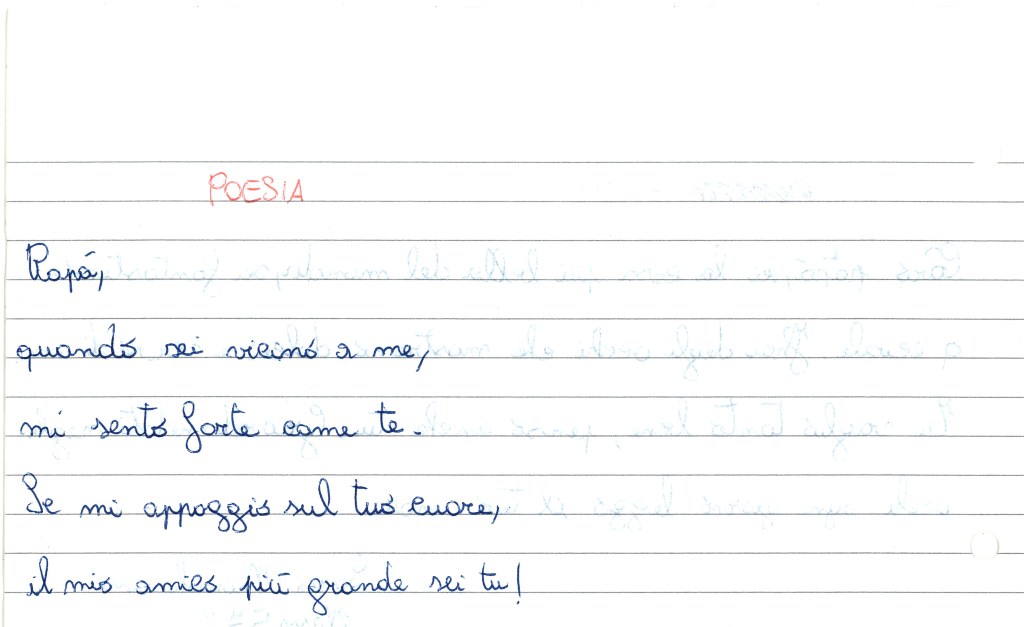 POESIA
Papá,
quando sei vicino a me,
mi sento forte come te.
Se mi appoggio sul tuo cuore,
il mio amico più grande sei tu!